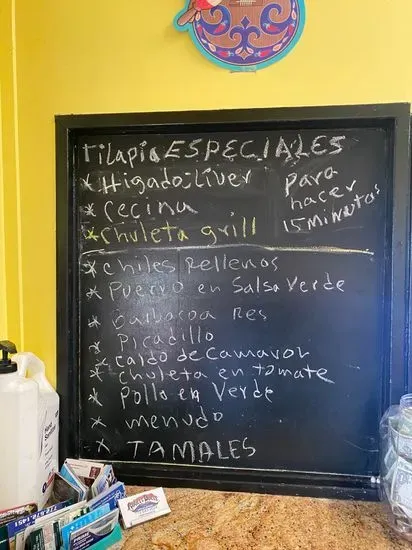 Tilapia ESPECIALES
* Higado;liver
* Cecina
* Chuleta grill
para
hacer
15 Minutos
* chiles Rellenos
* Puerco en Salsa Verde
* Barbacoa Res
* Picadillo
* Caldo de Camaron
* Chuleta en tomate
* Pollo en Verde
* menudo
* TAMALES